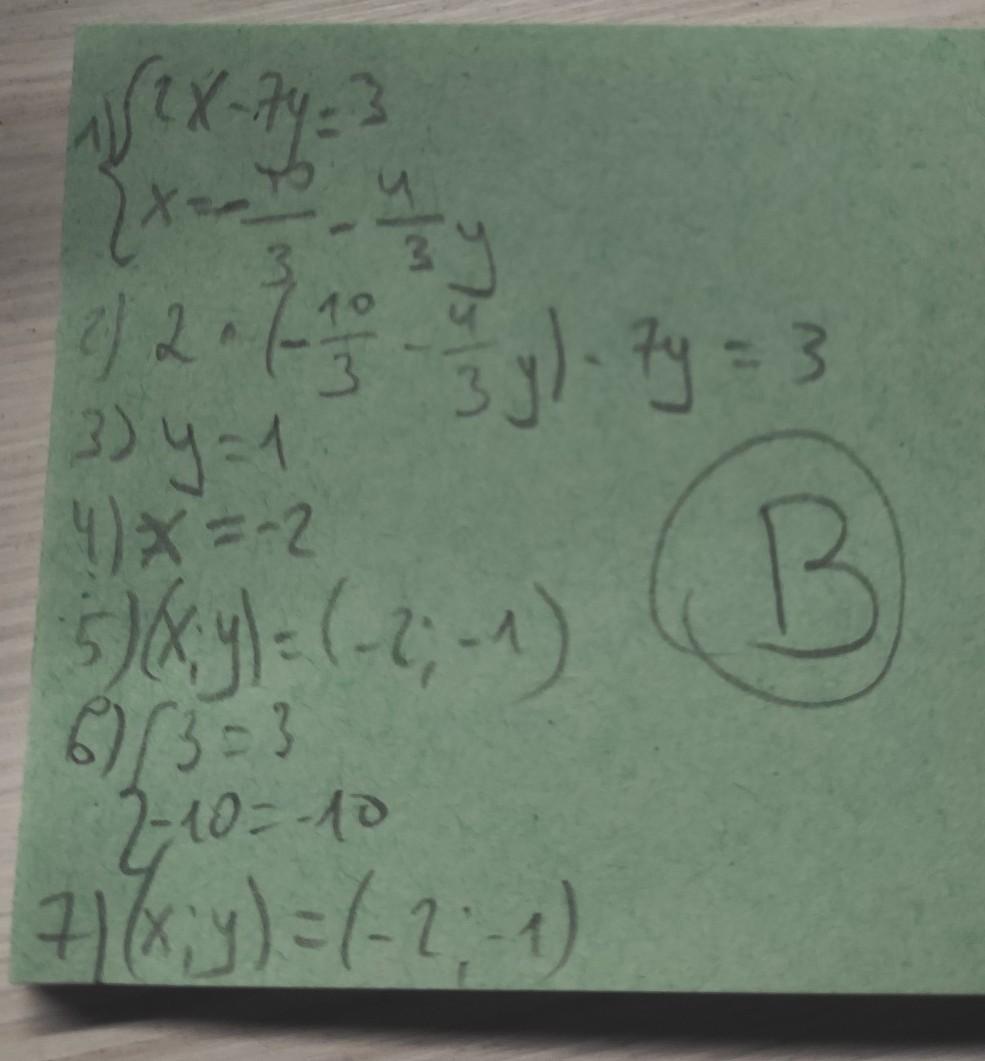 1) { 2x-7y=3
x=-10/3 - 4/3 y
2) 2·(-10/3 - 4/3 y) - 7y = 3
3) y=1
4) x=-2
5) (x;y)=(-2;-1)
B
6) { 3=3
-10=-10
7) (x;y)=(-2;-1)